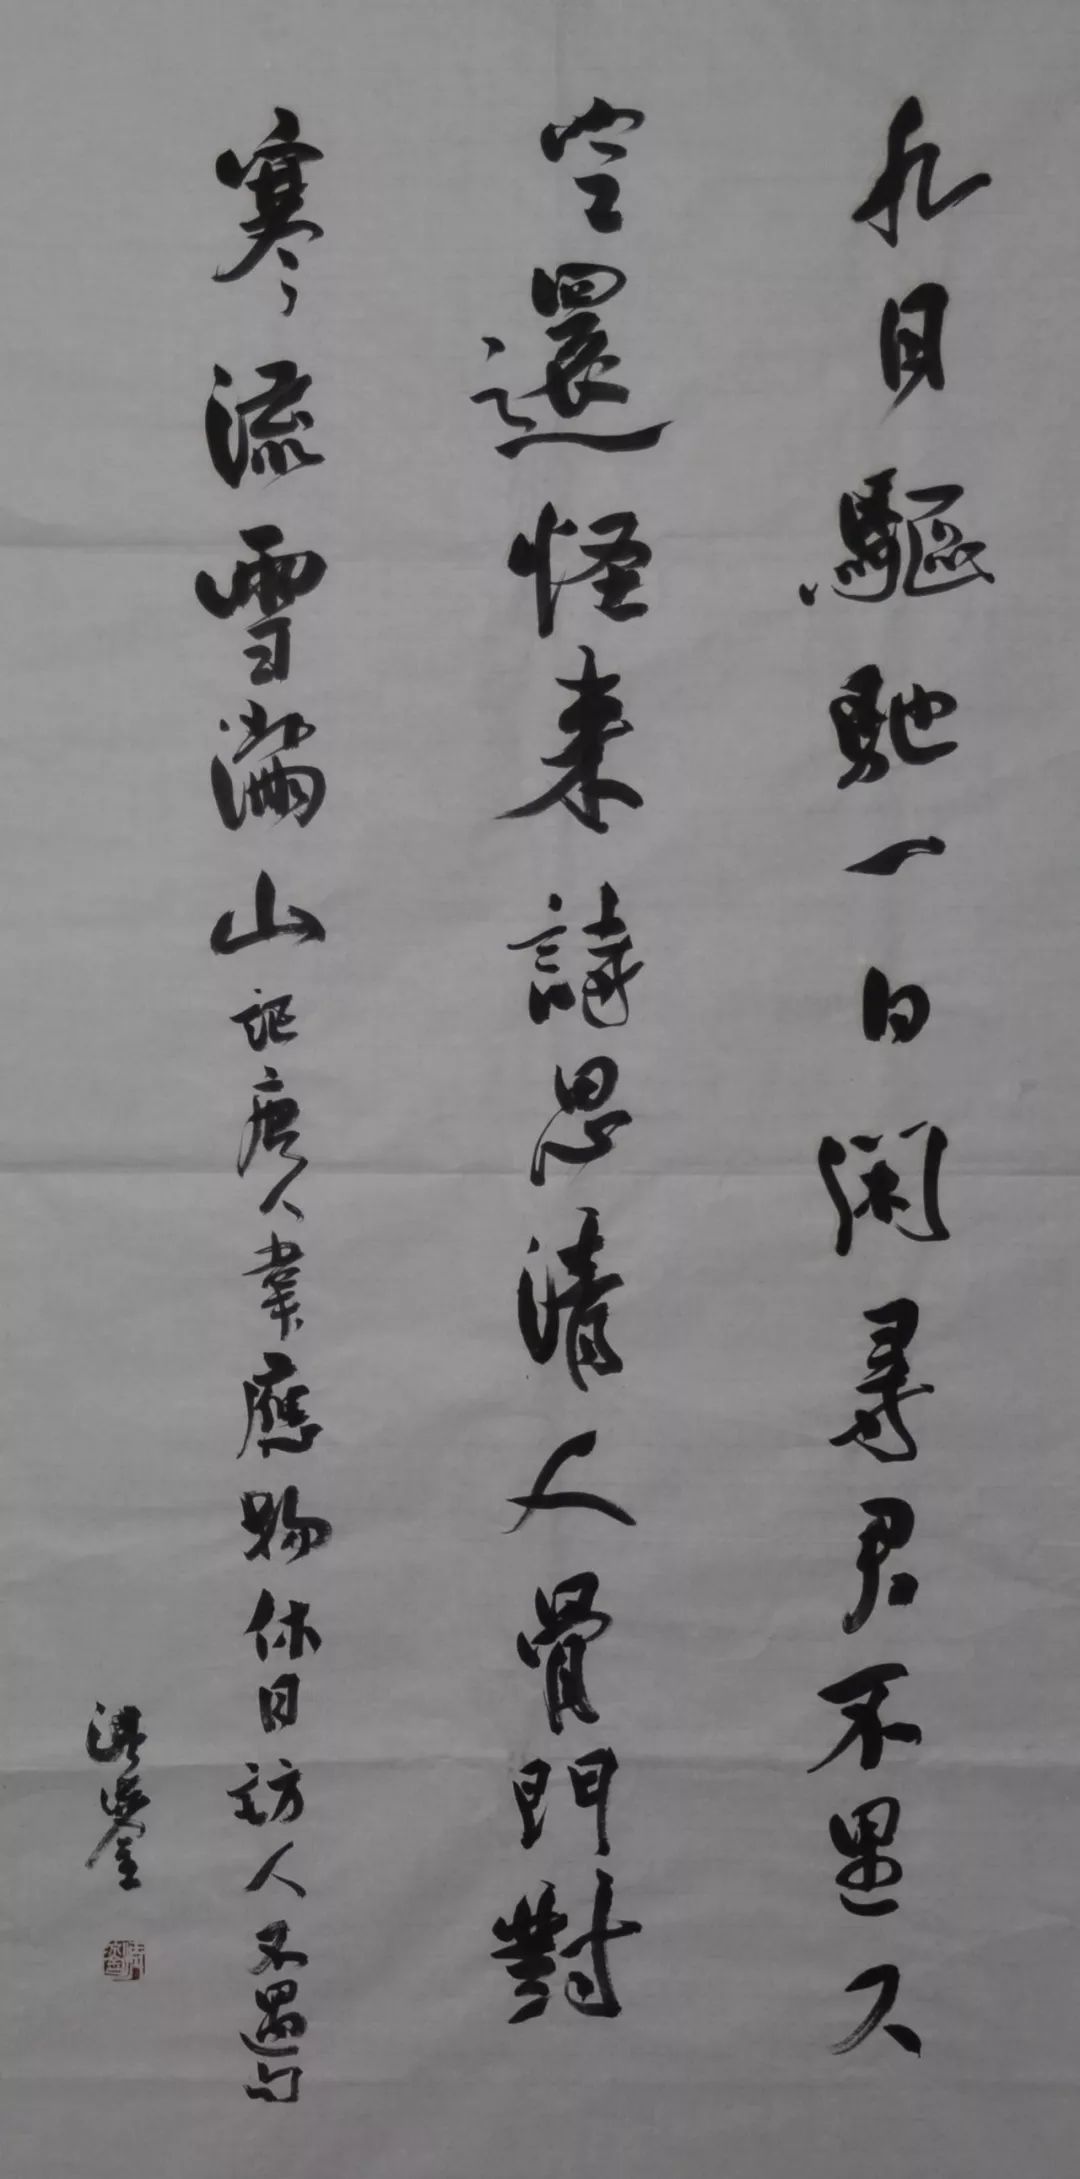 九日驅馳一日閑尋君不遇又
空還怪来詩思清人骨門對
寒流雪滿山記唐人韋應物休日訪人不遇句